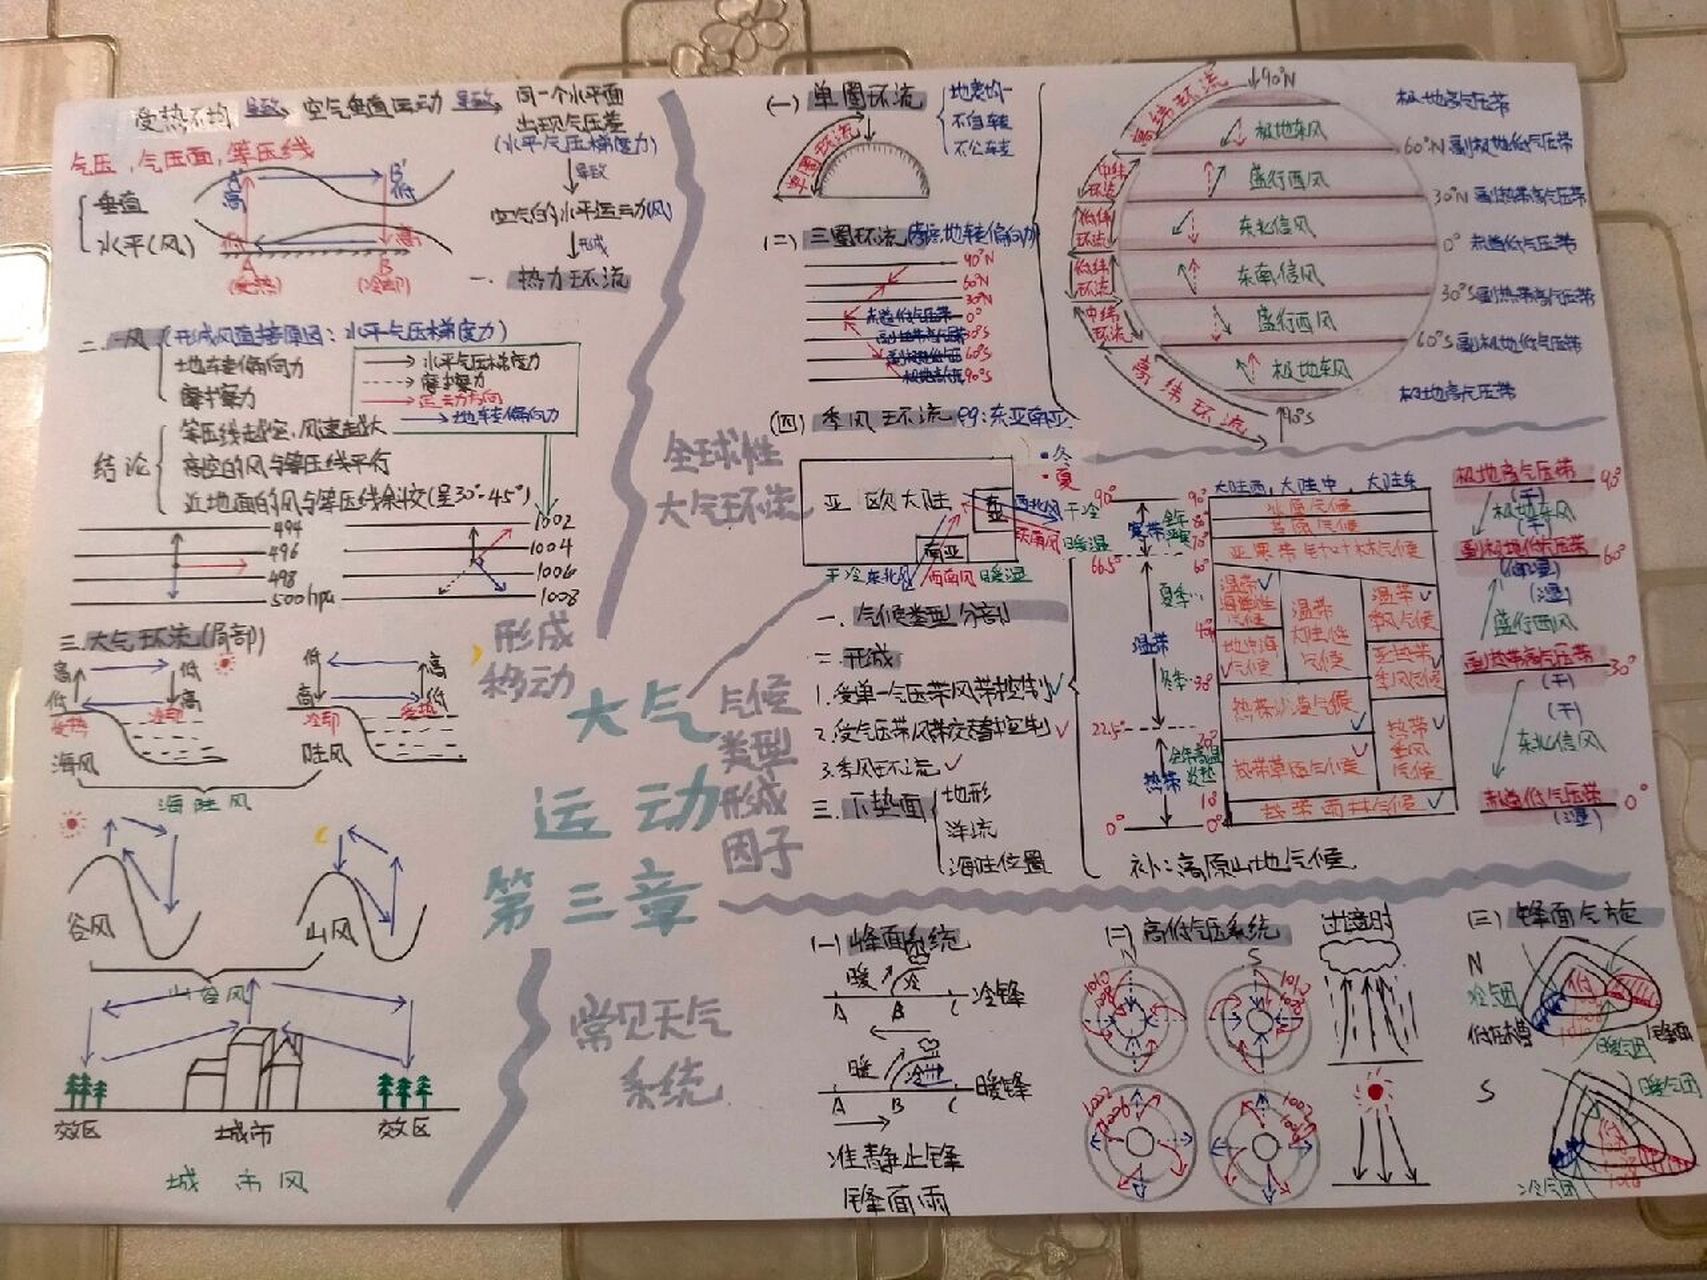 受热不均 导致 空气垂直运动 导致 同一个水平面
出现气压差
(水平气压梯度力)
导致
空气的水平运动(风)
形成
一. 热力环流
气压,气压面,等压线
垂直
水平(风)
A' 高
B' 低
低
高
A
(受热)
B
(冷却)
二. 风 (形成风直接原因:水平气压梯度力)
地转偏向力
摩擦力
水平气压梯度力
摩擦力
运动方向
地转偏向力
结论
等压线越密,风速越大
高空的风与等压线平行
近地面的风与等压线斜交(呈30°-45°)
494
496
498
500hpa
1002
1004
1006
1008
三.大气环流(局部)
高
低
低
高
受热
冷却
海风
低
高
高
低
冷却
受热
陆风
海陆风
谷风
山风
山谷风
效区
城市
效区
城市风
形成
移动
大气
运动
第三章
全球性
大气环流
气候
类型
形成
因子
常见天气
系统
(一) 单圈环流
地表均一
不自转
不公转
单圈环流
(二) 三圈环流
90°N
60°N
30°N
赤道低气压带 0°
副热带高气压带 30°S
副极地低气压 60°S
极地高气压 90°S
高纬环流
中纬环流
低纬环流
低纬环流
中纬环流
高纬环流
90°N
极地高气压带
极地东风
60°N 副极地低气压带
盛行西风
30°N 副热带高气压带
东北信风
0° 赤道低气压带
东南信风
30°S 副热带高气压带
盛行西风
60°S 副极地低气压带
极地东风
极地高气压带
90°S
(四) 季风环流 eg:东亚南亚
冬
夏
亚欧大陆
东亚
西北风 干冷
东南风 暖湿
南亚
干冷 东北风
西南风 暖湿
一. 气候类型分剖
二. 形成
1.受单一气压带风带控制
2.受气压带风带交替控制
3.季风环流
三. 下垫面
地形
洋流
海陆位置
90°
寒带
66.5°
夏季
温带
冬季
22.5°
热带
0°
大陆西,大陆中,大陆东
冰原气候
苔原气候
亚寒带针叶林气候
温带
海洋性
气候
温带
大陆性
气候
温带
季风气候
地中海
气候
亚热带
季风气候
热带沙漠气候
热带
季风
气候
热带草原气候
热带雨林气候
补:高原山地气候.
极地高气压带 90°
(干)
极地东风
副极地低气压带 60°
(湿)
盛行西风
副热带高气压带 30°
(干)
(干)
东北信风
赤道低气压带 0°
(湿)
(一) 峰面系统
暖
冷
A B C
冷锋
暖
冷
A B C
暖锋
准静止锋
锋面雨
(二) 高低气压系统
N
S
过境时
(三) 锋面气旋
N
冷气团
低压槽
低
暖气团
锋面
S
暖气团
冷气团